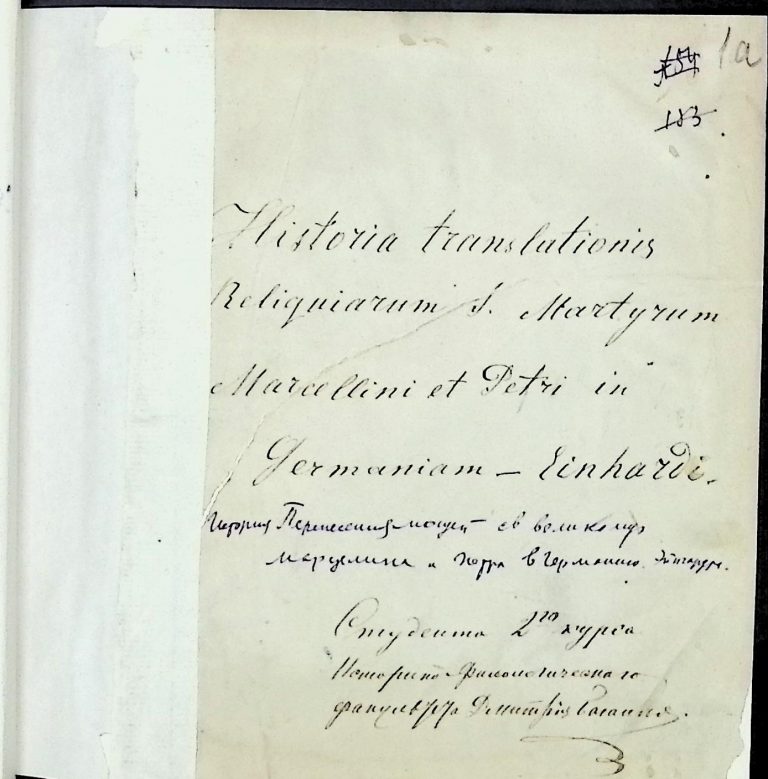 1a
183
Historia translationis
Reliquiarum S. Martyrum
Marcellini et Petri in
Germaniam – Einhardi.
История Перенесения мощей св великомуч
марцелина и Петра в Германию. Эйнгарда.
Студента 2го курса
Историко-филологическаго
факультета Дмитрія